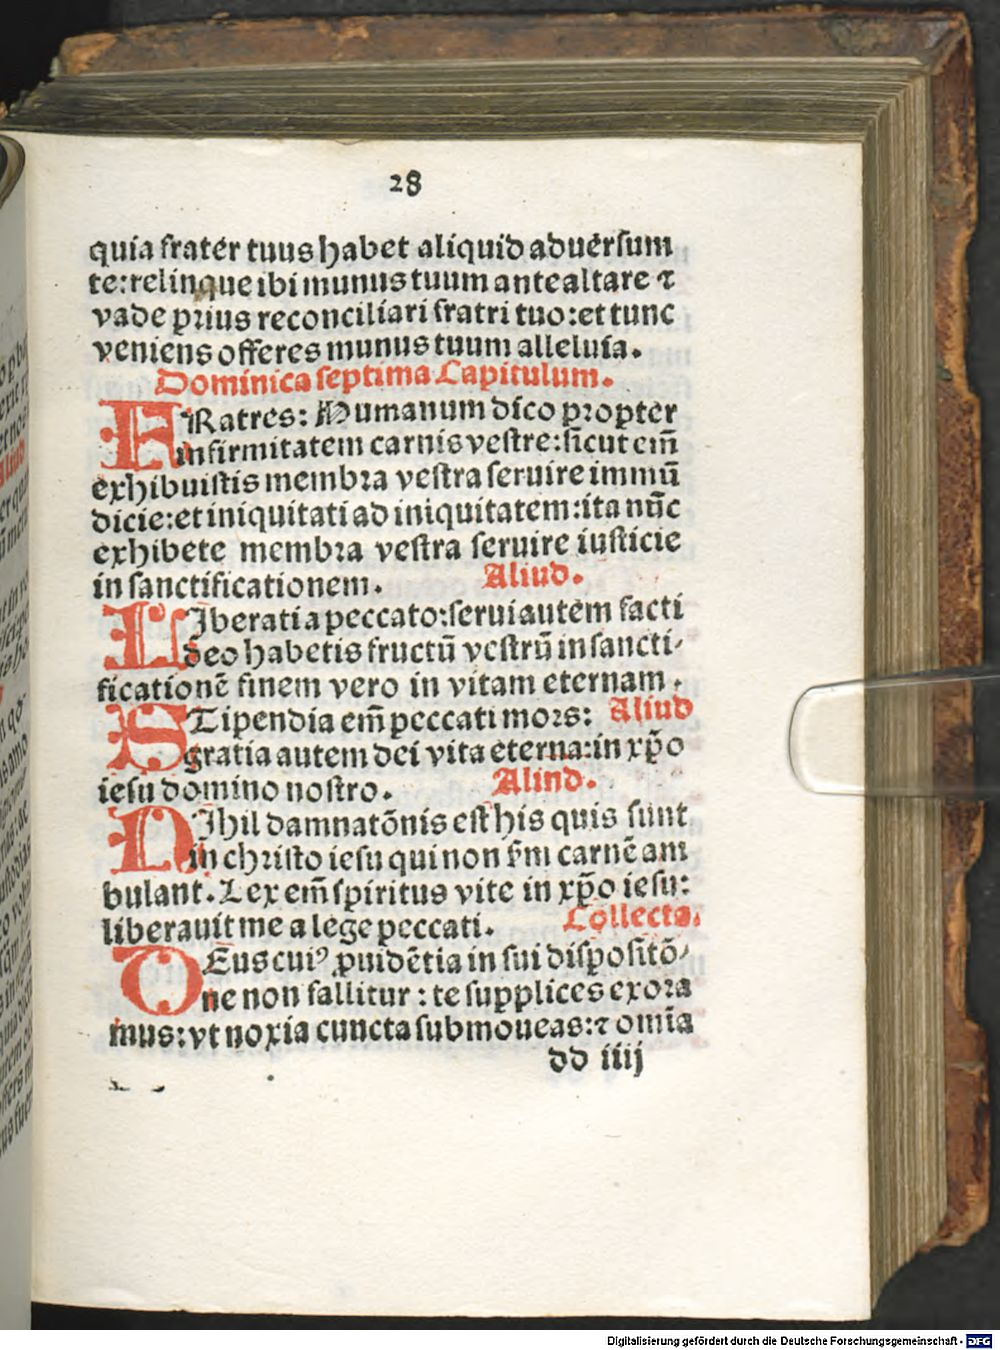 28
quia frater tuus habet aliquid aduersum
te: relinque ibi munus tuum ante altare ⁊
vade prius reconciliari fratri tuo: et tunc
veniens offeres munus tuum alleluia.
Dominica septima Capitulum.
FRatres: Humanum dico propter
infirmitatem carnis vestre: sicut em̄
exhibuistis membra vestra seruire immū
dicie: et iniquitati ad iniquitatem: ita nūc
exhibete membra vestra seruire iusticie
in sanctificationem. Aliud.
LIberati a peccato: serui autem facti
deo habetis fructū vestrū in sancti-
ficationē finem vero in vitam eternam.
STipendia em̄ peccati mors: Aliud
gratia autem dei vita eterna: in xp̄o
iesu domino nostro. Aliud.
NIhil damnatōnis est his quis sunt
in christo iesu qui non ẜm carnē am
bulant. Lex em̄ spiritus vite in xp̄o iesu:
liberauit me a lege peccati. Collecta.
DEus cuiꝰ ꝓuidētia in sui dispositō-
ne non fallitur: te supplices exora
mus: vt noxia cuncta submoueas: ⁊ omīa
dd iiij
Digitalisierung gefördert durch die Deutsche Forschungsgemeinschaft - DFG